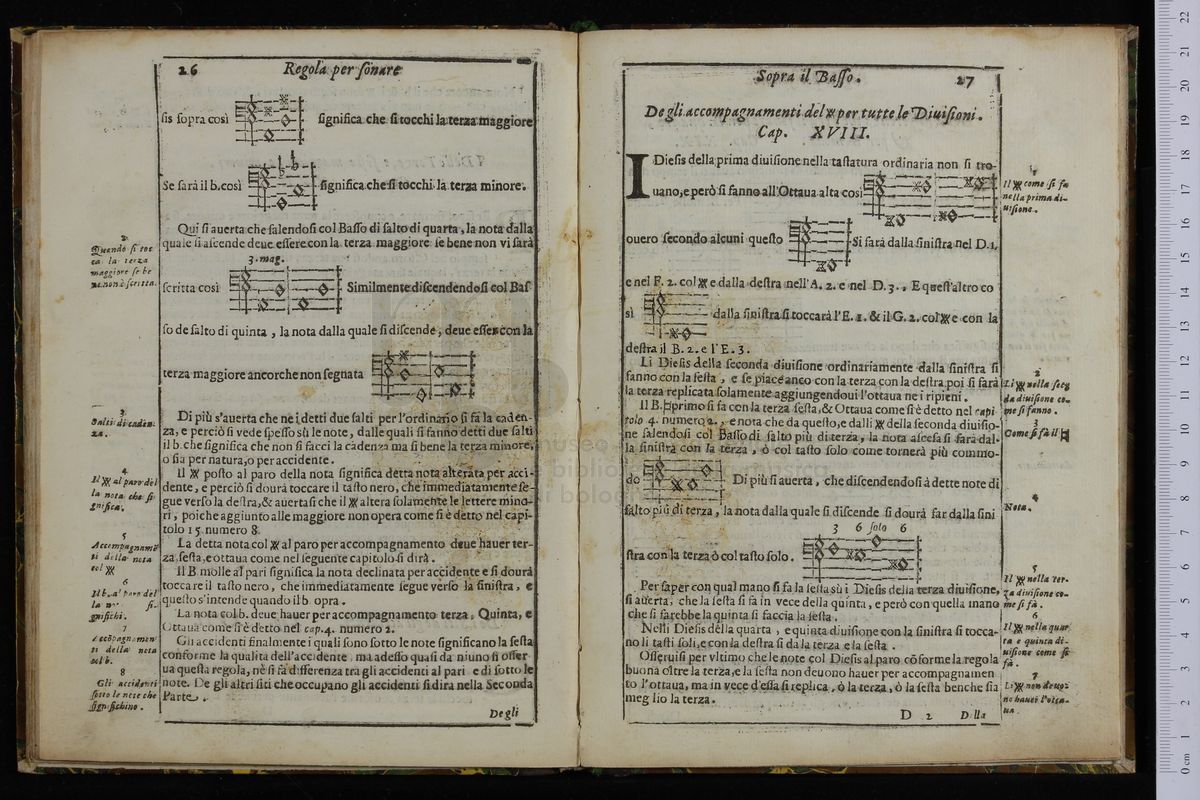 26
Regola per sonare
sis sopra così significa che si tocchi la terza maggiore
Se sarà il b. così significa che si tocchi la terza minore.
Qui si auerta che salendosi col Basso di salto di quarta, la nota dalla
quale si ascende deue essere con la terza maggiore se bene non vi sarà
3. mag.
scritta così Similmente discendendosi col Bas
so de salto di quinta, la nota dalla quale si discende, deue esser con la
terza maggiore ancorche non segnata
Di più s'auerta che nei detti due salti per l'ordinario si fà la caden-
za, e perciò si vede spesso sù le note, dalle quali si fanno detti due salti
il b. che significa che non si facci la cadenza ma si bene la terza minore,
o sia per natura, o per accidente.
Il 𝄪 posto al paro della nota significa detta nota alterata per acci
dente, e perciò si dourà toccare il tasto nero, che immediatamente se-
gue verso la destra, & auerta si che il 𝄪 altera solamente le lettere mino-
ri, poiche aggiunto alle maggiore non opera come si è detto nel capi-
tolo 15. numero 8.
La detta nota col 𝄪 al paro per accompagnamento deue hauer ter-
za, sesta, e ottaua come nel seguente capitolo si dirà.
Il B molle al pari significa la nota declinata per accidente e si dourà
toccare il tasto nero, che immediatamente segue verso la sinistra, e
questo s'intende quando il b opra.
La nota col b. deue hauer per accompagnamento terza, Quinta, e
Ottaua come si è detto nel cap. 4. numero 2.
Gli accidenti finalmente i quali sono sotto le note significano la sesta
conforme la qualità dell'accidente, ma adesso quasi da niuno si osser
ua questa regola, nè si fà differenza tra gli accidenti al pari e di sotto le
note. De gli altri siti che occupano gli accidenti si dira nella Seconda
Parte.
De gli
2
Quando si toc
ca la terza
maggiore se be
ne non è scritta.
3
Salti di caden
za.
4
Il 𝄪 al paro del
la nota che si
gnifica.
5
Accompagnamē
ti della nota
col 𝄪
6
Il b. al paro del
la
gnifichi.
7
Accōpagnamen
ti della nota
col b.
8
Gli accidenti
sotto le note che
significhino.
Sopra il Basso.
27
De gli accompagnamenti del 𝄪 per tutte le Diuisioni.
Cap. XVIII.
I Diesis della prima diuisione nella tastatura ordinaria non si tro-
uano, e però si fanno all'Ottaua alta così
ouero secondo alcuni questo Si farà dalla sinistra nel D. 1,
e nel F. 2. col 𝄪 e dalla destra nell'A. 2. e nel D. 3., E quest'altro co
sì dalla sinistra si toccarà l'E. 1. & il G. 2. col 𝄪 e con la
destra il B. 2. e l'E. 3.
Li Diesis della seconda diuisione ordinariamente dalla sinistra si
fanno con la sesta, e se piace anco con la terza con la destra poi si farà
la terza replicata solamente aggiungendoui l'ottaua ne i ripieni.
Il B. ♮ primo si fa con la terza sesta, & Ottaua come si è detto nel capi
tolo 4. numero 2., e nota che da questo, e dalli 𝄪 della seconda diuisio-
ne salendosi col Basso di salto più di terza, la nota ascesa si farà dal-
la sinistra con la terza, ò col tasto solo come tornerà più commo-
do Di più si auerta, che discendendosi à dette note di
salto più di terza, la nota dalla quale si discende si dourà far dalla sini
3 6 solo 6
stra con la terza ò col tasto solo.
Per saper con qual mano si fà la sesta sù i Diesis della terza diuisione,
si auerta, che la sesta si fà in vece della quinta, e però con quella mano
che si farebbe la quinta si faccia la sesta.
Nelli Diesis della quarta, e quinta diuisione con la sinistra si tocca-
no li tasti soli, e con la destra si dà la terza e la sesta.
Osseruisi per vltimo che le note col Diesis al paro cōforme la regola
buona oltre la terza, e la sesta non deuono hauer per accompagnamen
to l'ottaua, ma in vece d'essa si replica, ò la terza, ò la sesta benche sia
meglio la terza.
D 2
Dlla
Il 𝄪 come si fa
nella prima di-
uisione.
2
Li 𝄪 nella secō
da diuisione co-
me si fanno.
3
Come si fà il ♮
4
Nota.
5
Il 𝄪 nella ter-
za diuisione co-
me si fà.
6
Il 𝄪 nella quar
ta e quinta di-
uisione come si
fà.
7
Li 𝄪 non deuo-
no hauer l'otta-
ua.
museo
biblioteca della musica
di bologna